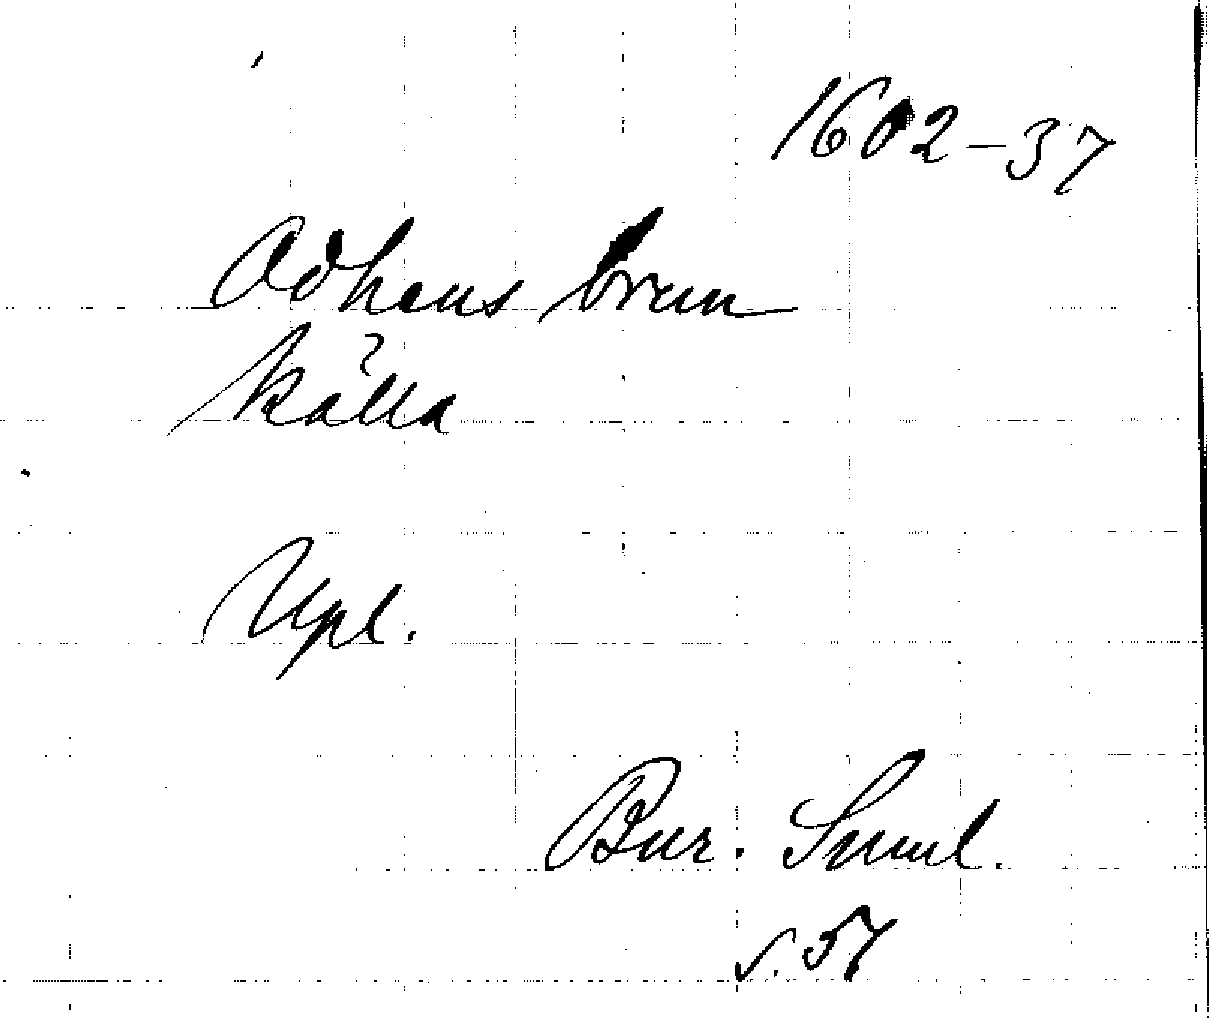 1602-37
Odhens brun
källa
Upl.
Bur. Suml.
s. 57